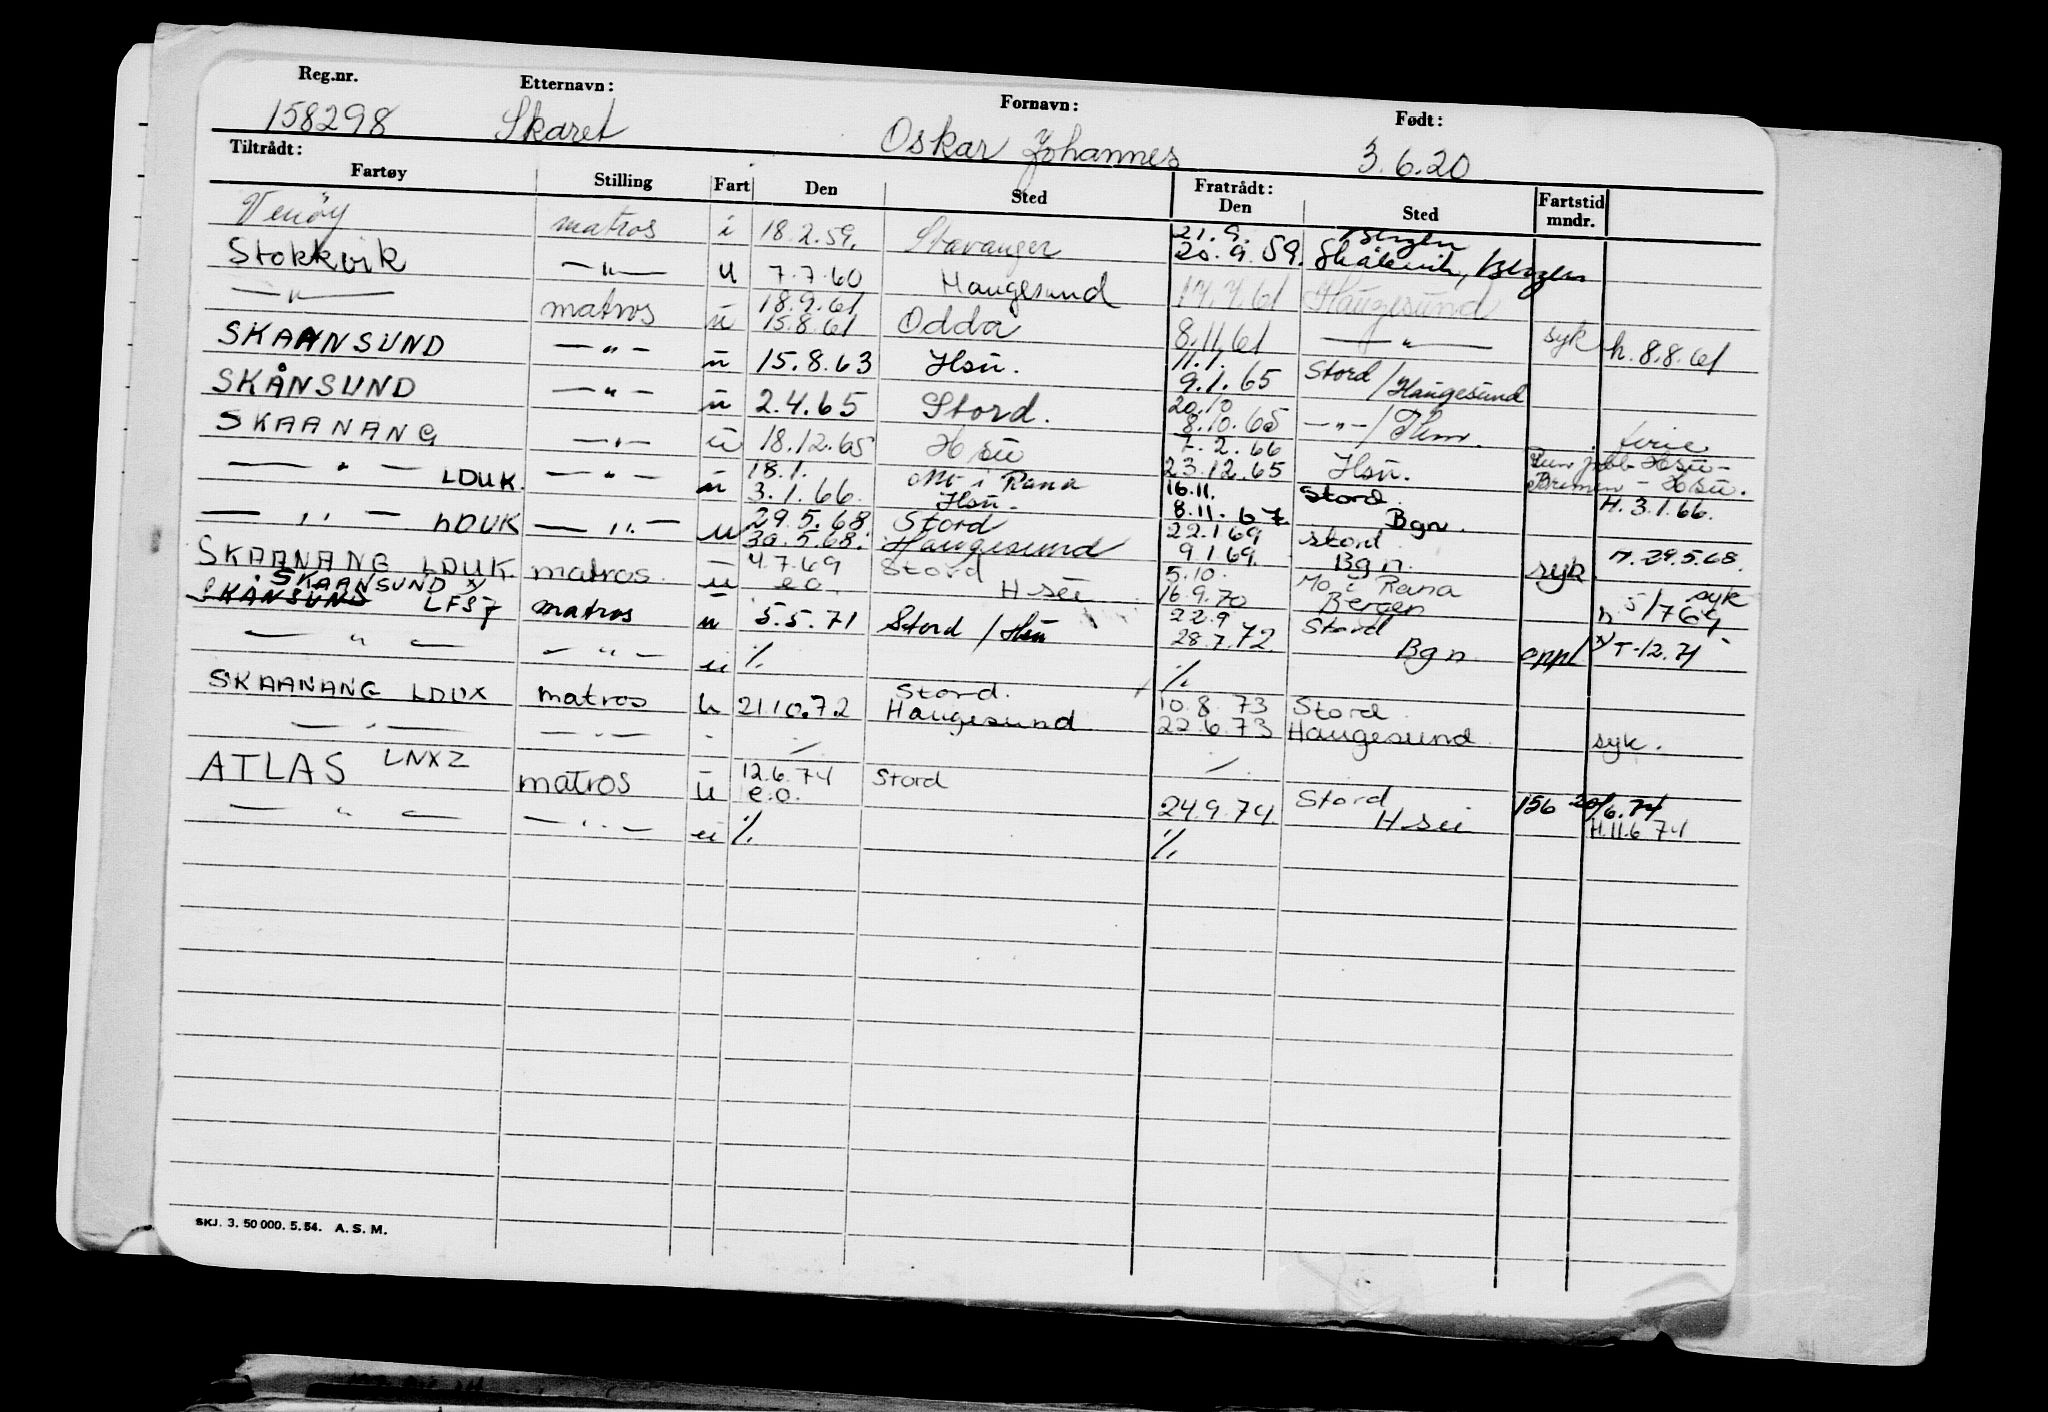 Reg.nr. Etternavn: Fornavn: Født:
158298 Skaret Oskar Johannes 3.6.20
Tiltrådt: Fratrådt:
Fartøy Stilling Fart Den Sted Den Sted Fartstid mndr.
21.9. Bergen
matros i 18.2.59. Stavanger 20.9.59. Skånevik, Bergen
Stokkvik — " — u 7.7.60 Haugesund 17.7.61 Haugesund
18.9.61
— " — matros u 15.8.61 Odda 8.11.61 — " — syk h. 8.8.61
11.1.
SKAANSUND — " — u 15.8.63 Hsu. 9.1.65 Stord / Haugesund
20.10
SKÅNSUND — " — u 2.4.65 Stord. 8.10.65 — " — / ferie
7.2.66
SKAANANG — " — u 18.12.65 Hsu 23.12.65 Hsu. Hsu - Bremen - Hsu.
18.1. Mo i Rana 16.11. Stord.
— " — LDUK. — " — u 3.1.66. Hsu. 8.11.67 Bgn. H. 3.1.66.
29.5.68 Stord 22.1.69 Stord
— " — LDUK — " — u 30.5.68. Haugesund 9.1.69. Bgn. syk. n. 29.5.68.
4.7.69 Stord 5.10. Mo i Rana syk
SKAANANG LDUK matros. u e.o. Hsu 16.9.70 Bergen h 5/7 69
SKAANSUND x) 22.9 Stord
SKÅNSUND LFSF matros u 5.5.71 Stord / Hsu 28.7.72 Bgn oppl x) T-12.71
— " — — " — u ·/. ·/.
Stord. 10.8.73 Stord
SKAANANG LDUX matros u 21.10.72 Haugesund 22.6.73 Haugesund syk.
— " — — " —
12.6.74 Stord
ATLAS LNXZ matros u e.o. Stord 24.9.74. Hsu 156 20/6.74
H.11.6.74
— " — — " — u ·/. ·/.
SKJ. 3. 50 000. 5.54. A.S.M.